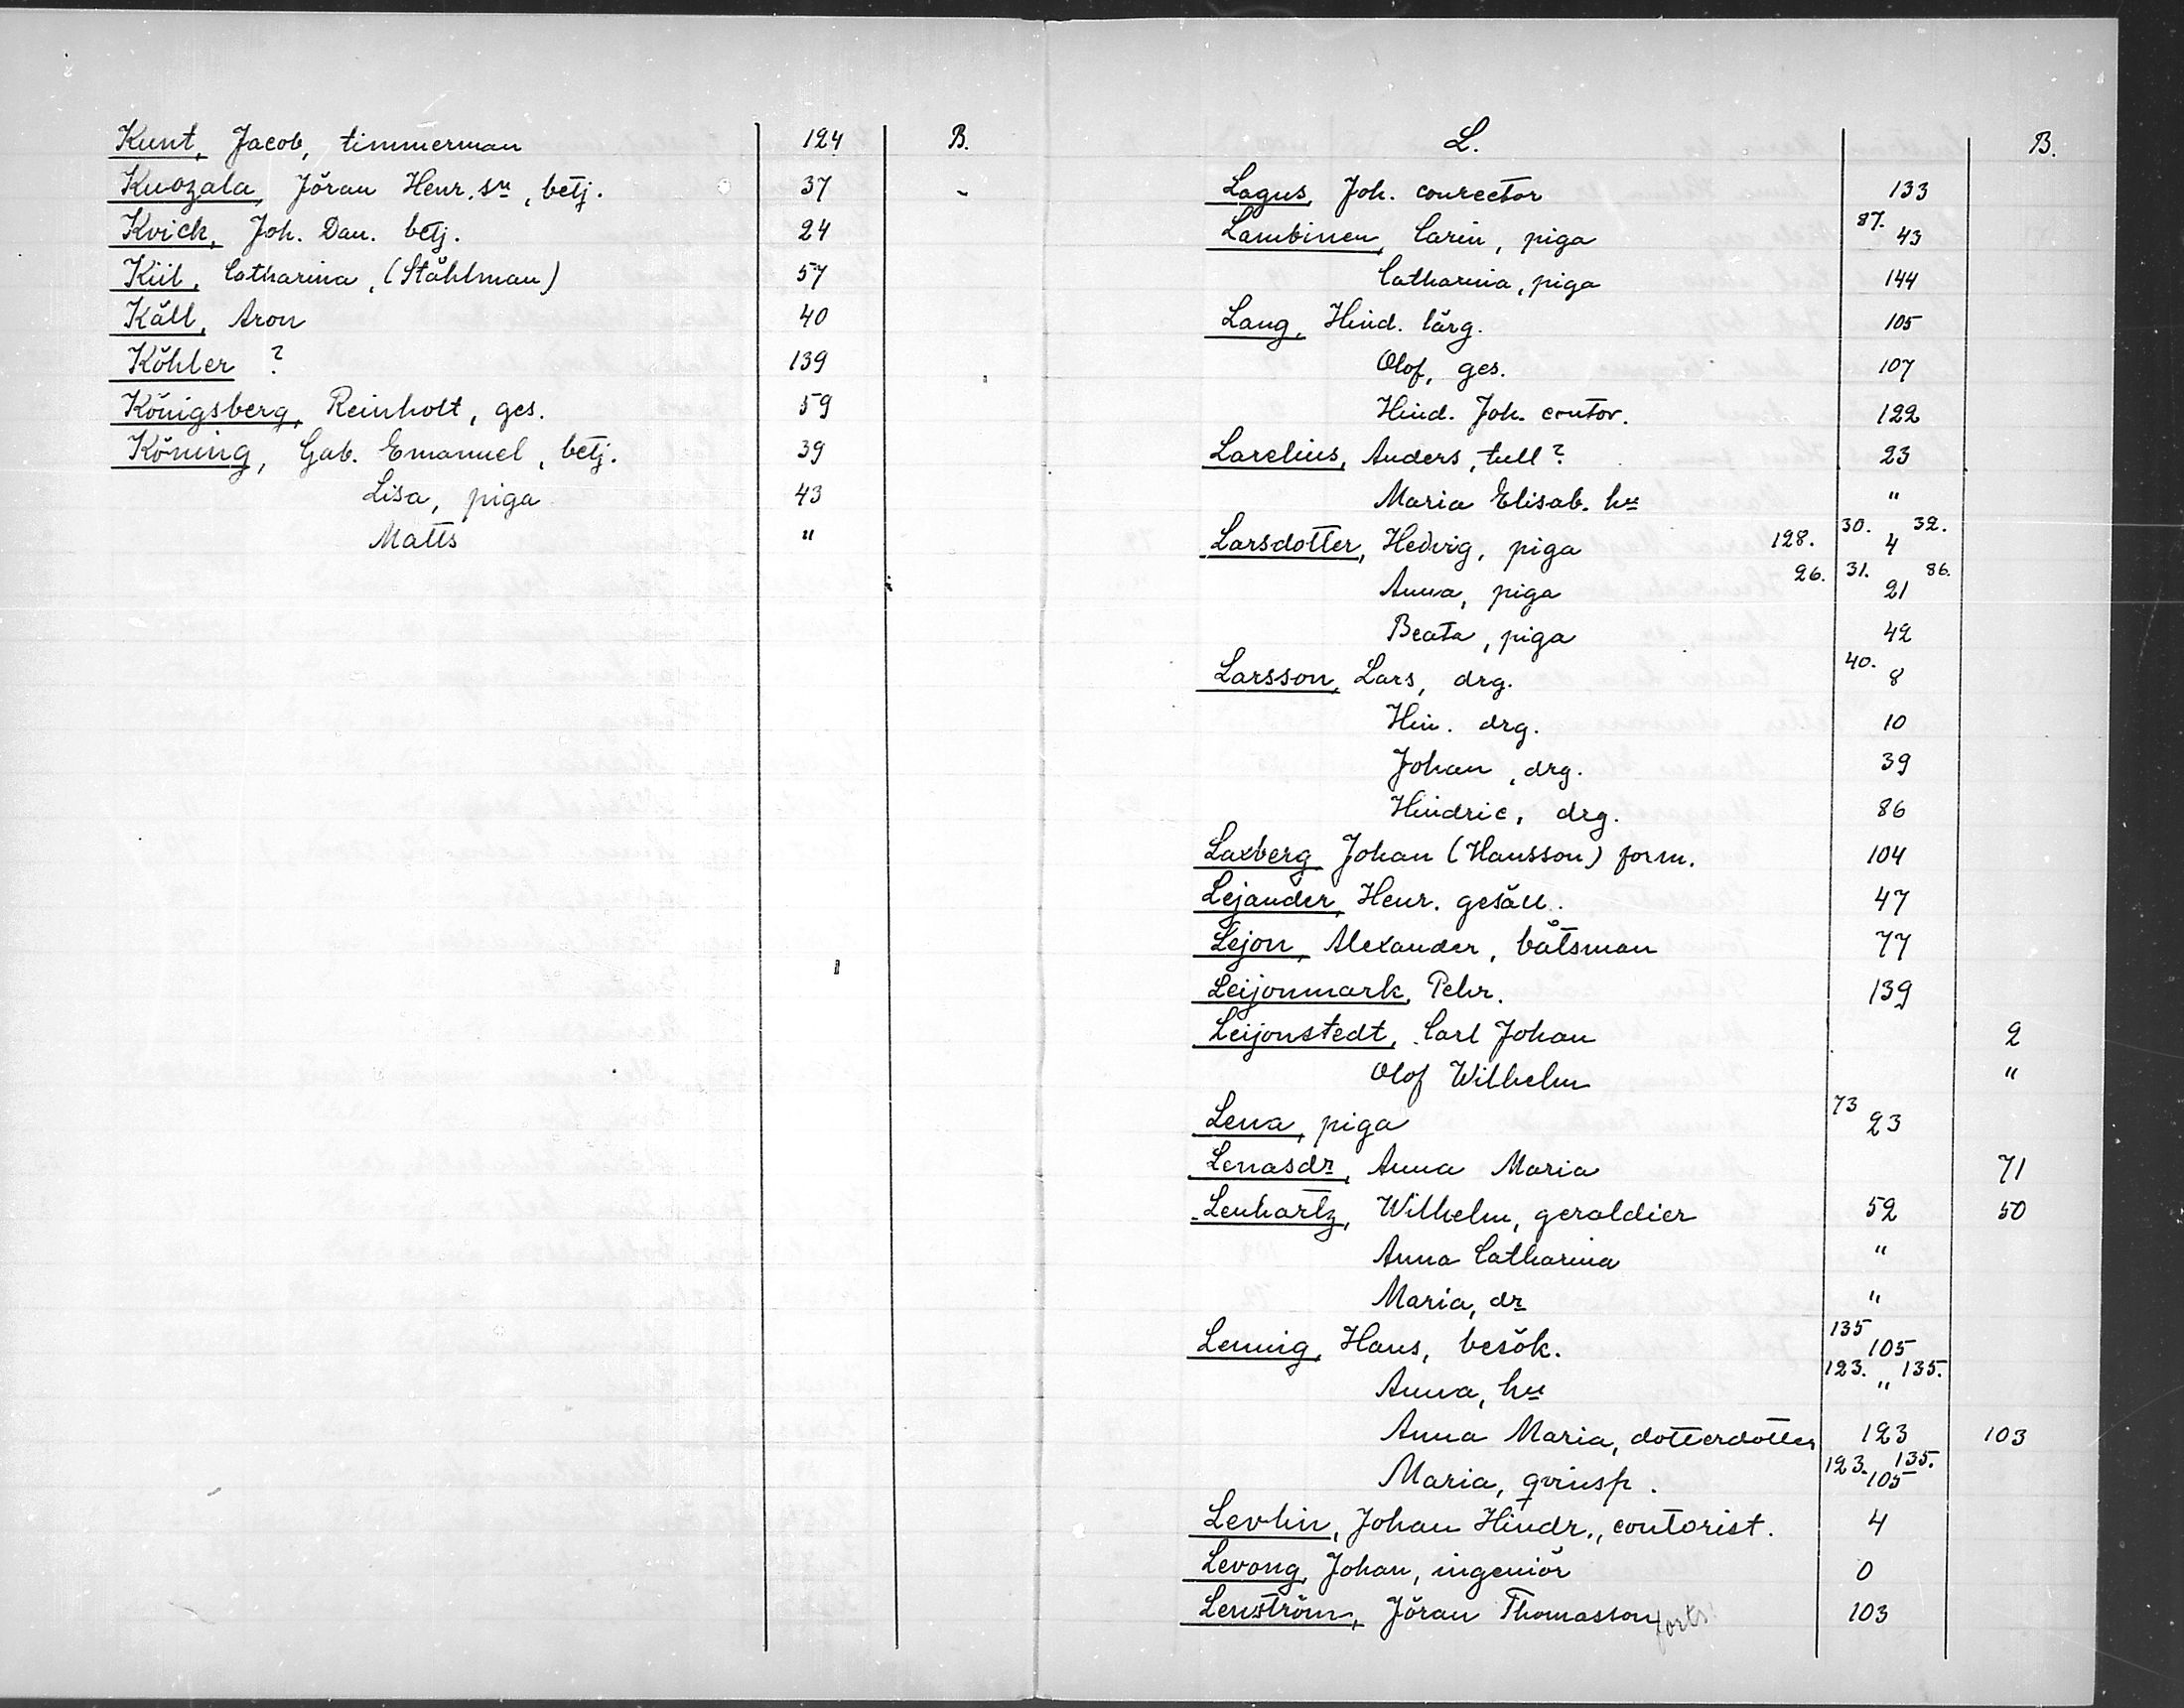 Kunt, Jacob, timmerman 124 B.
Kuozala, Jöran Henr.sn, betj. 37 -
Kvick, Joh. Dan. betj. 24
Kiil, Catharina, (Ståhlman) 57
Käll, Aron 40
Köhler ? 139
Königsberg, Reinholt, ges. 59
Köning, Gab. Emanuel, betj. 39
Lisa, piga 43
Matts "
L. B.
Lagus, Joh. conrector 133
Lambinen, Carin, piga 87. 43
Catharina, piga 144
Lang, Hind. lärg. 105
Olof, ges. 107
Hind. Joh. contor. 122
Larelius, Anders, tull? 23
Maria Elisab. hu "
Larsdotter, Hedvig, piga 128. 30. 4 32.
Anna, piga 26. 31. 21 86.
Beata, piga 42
Larsson, Lars, drg. 40. 8
Hin. drg. 10
Johan, drg. 39
Hindric, drg. 86
Laxberg Johan (Hansson) form. 104
Lejander, Henr. gesäll. 47
Lejon, Alexander, båtsman 77
Leijonmark, Pehr. 139
Leijonstedt, Carl Johan 2
Olof Wilhelm "
Lena, piga 73 23
Lenasdr, Anna Maria 71
Lenhartz, Wilhelm, geraldier 52 50
Anna Catharina "
Maria, dr "
Lennig, Hans, besök. 135 105
Anna, hu 123. " 135.
Anna Maria, dotterdotter 123 103
Maria, qvinsp. 123. 135. 105
Levlin, Johan Hindr., contorist. 4
Levong, Johan, ingeniör 0
Lenström, Jöran Thomasson 103
forts.